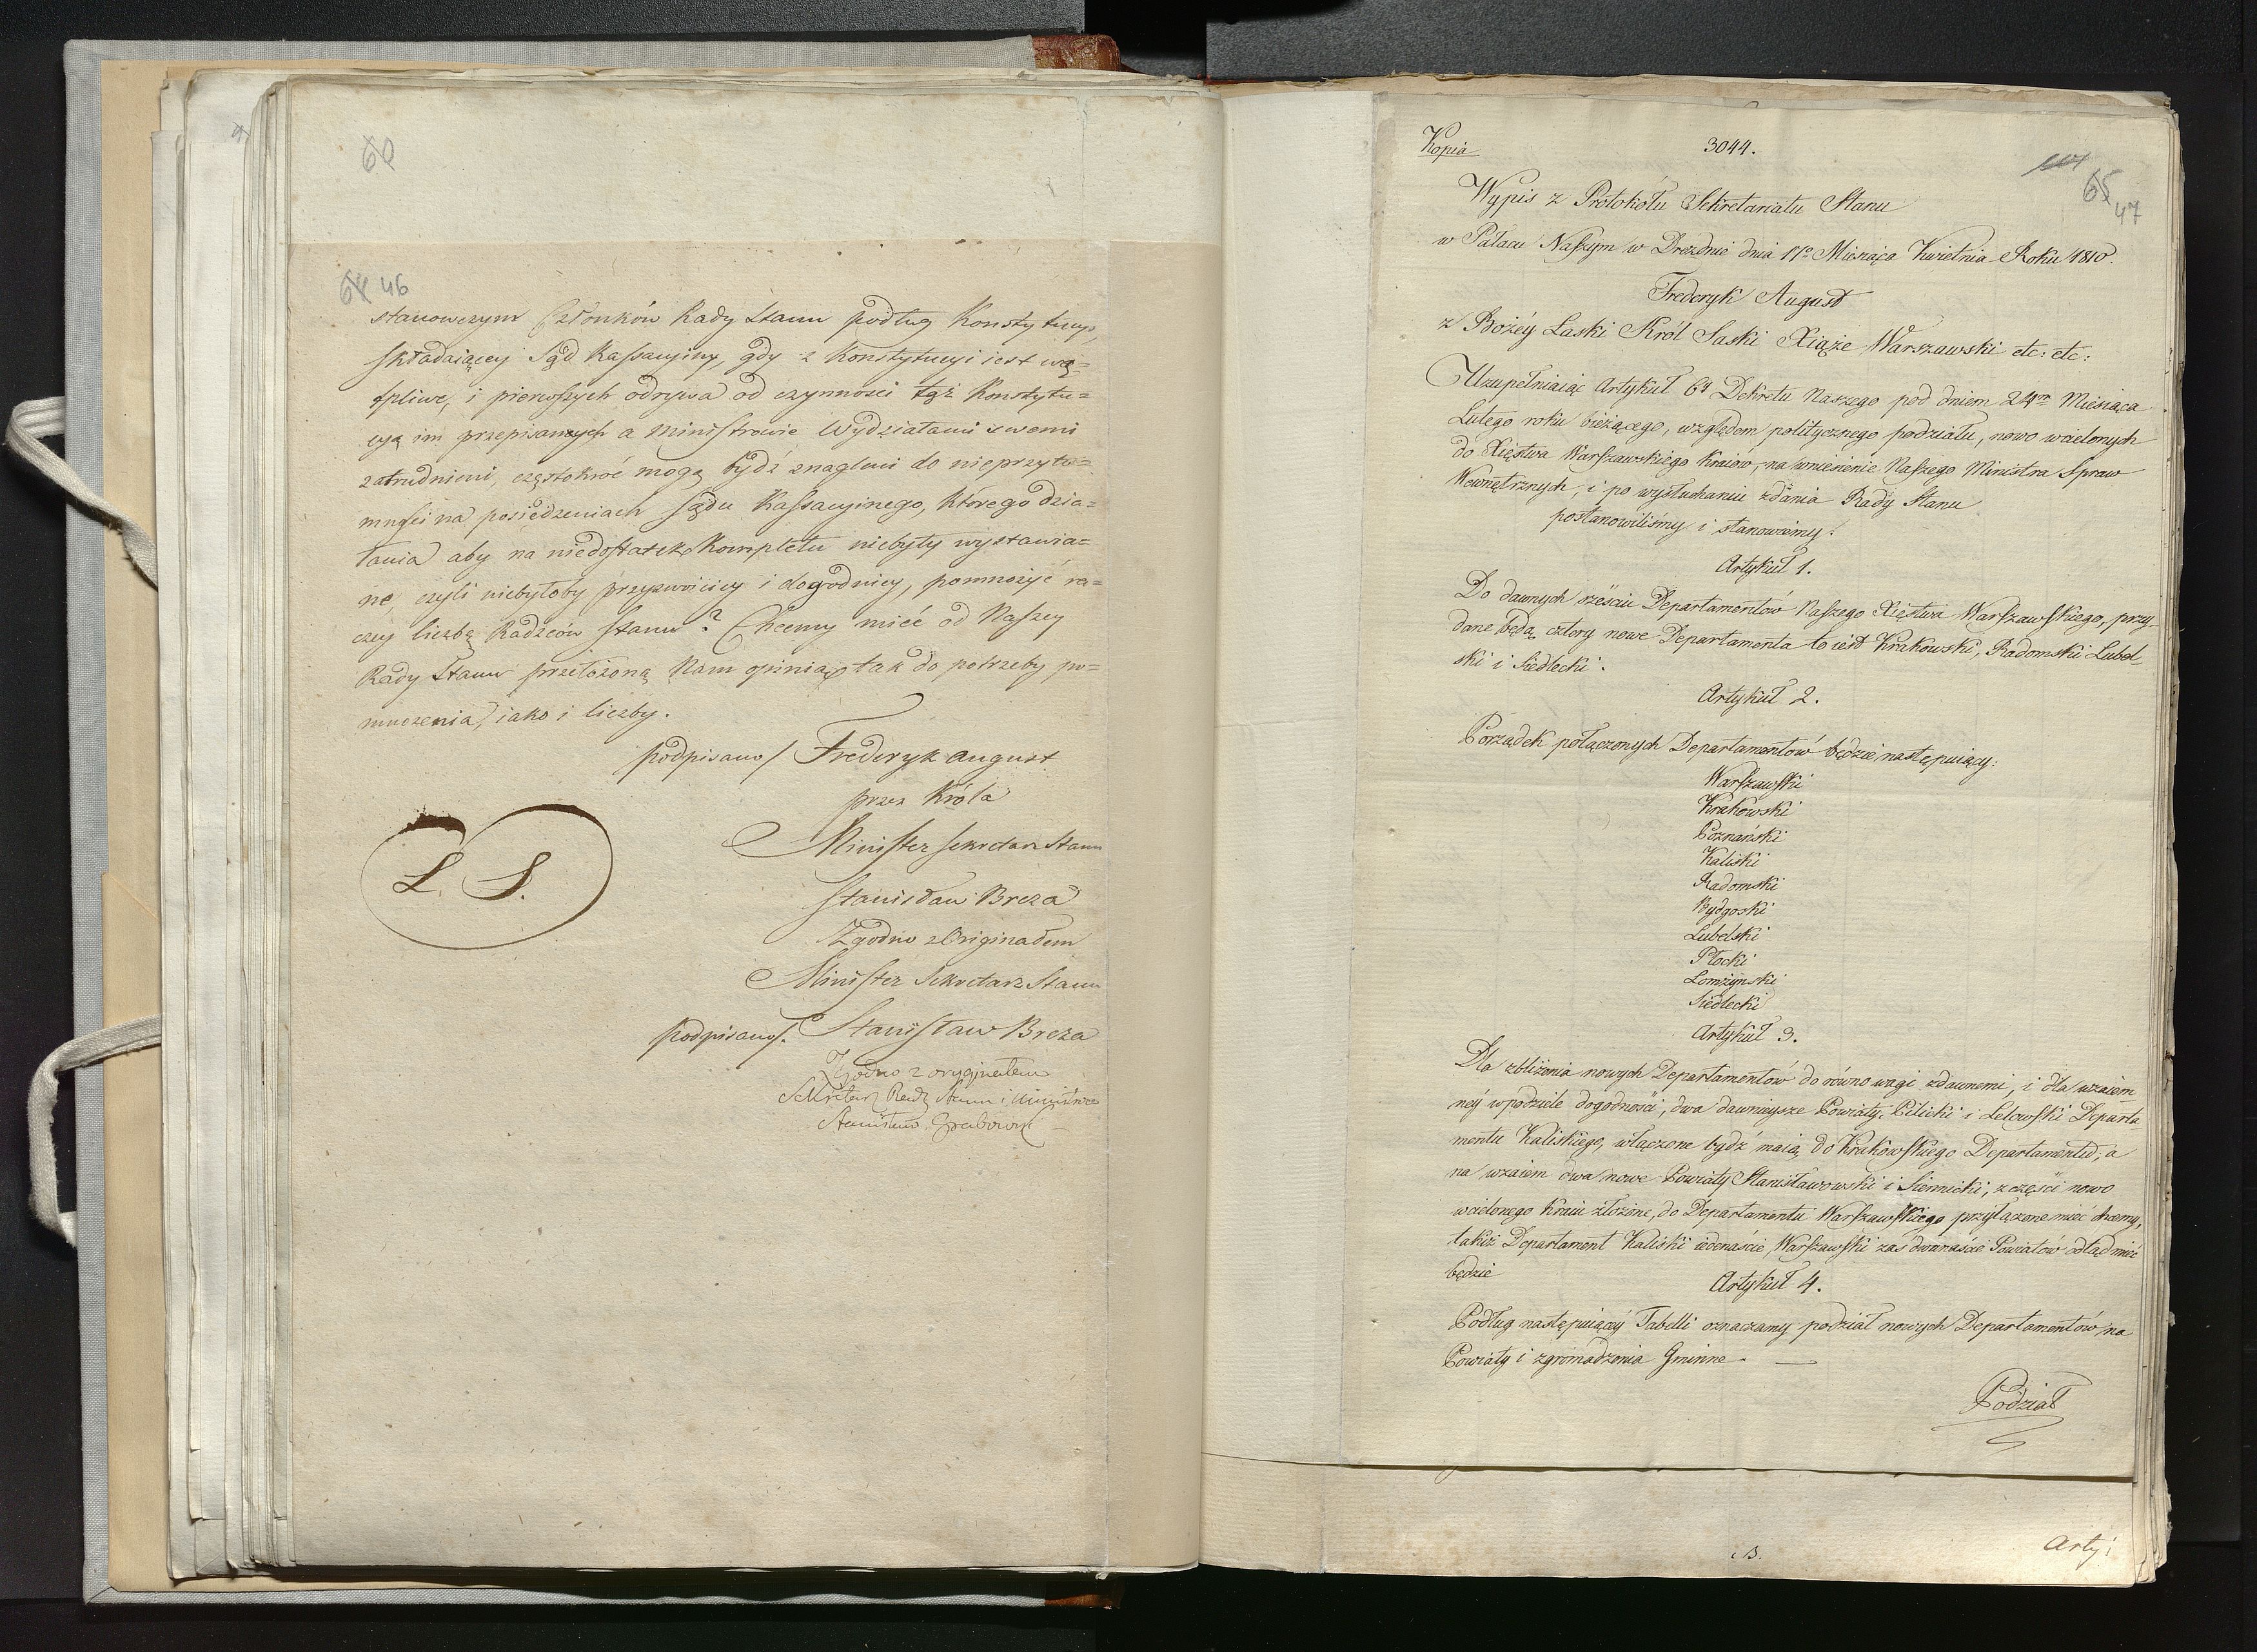 60
64 46
stanowczym Członków Rady Stanu podług Konstytucyi,
składaiącey Sąd Kassacyiny, gdy z Konstytucyi iest wą=
tpliwe, i pierwszych odrywa od czynności tąż Konstytu=
cyą im przepisanych a Ministrowie Wydziałami swemi
zatrudnieni, częstokroć mogą bydź znagleni do nieprzyto=
mności na posiedzeniach Sądu Kassacyinego, którego dzia=
łania aby na niedostatek Kompletu niebyły wystawia=
ne, czyli niebyłoby przyzwoiciey i dogodniey, pomnożyć ra=
czey liczbę Radzców Stanu? Chcemy mieć od Naszey
Rady Stanu przełożoną Nam opinią tak do potrzeby po=
mnożenia, iako i liczby.
podpisano/ Frederyk August
przez Króla
Minister Sekretarz Stanu
Stanisław Breza
L. S.
Zgodno z Originałem
Minister Sekretarz Stanu
podpisano/. Stanisław Breza
Zgodno z oryginałem
Sekretarz Rady Stanu i Ministrów
Stanisław Grabowski
Kopia
3044.
65
47
Wypis z Protokółu Sekretariatu Stanu
w Pałacu Naszym w Dreznie dnia 17o Miesiąca Kwietnia Roku 1810.
Frederyk August
z Bożéy Łaski Król Saski Xiąże Warszawski etc: etc:
Uzupełniaiąc Artykuł 6y Dekretu Naszego pod dniem 24m Miesiąca
Lutego roku bieżącego, względem politycznego podziału, nowo wcielonych
do Xięstwa Warszawskiego Kraiów, na wniesienie Naszego Ministra Spraw
Wewnętrznych, i po wysłuchaniu zdania Rady Stanu
postanowiliśmy i stanowiemy:
Artykuł 1.
Do dawnych sześciu Departamentów Naszego Xięstwa Warszawskiego, przy-
dane będą cztery nowe Departamenta to iest Krakowski, Radomski Lubel-
ski i Siedlecki.
Artykuł 2.
Porządek połączonych Departamentów będzie następuiący:
Warszawski
Krakowski
Poznański
Kaliski
Radomski
Bydgoski
Lubelski
Płocki
Łomżyński
Siedlecki
Artykuł 3.
Dla zbliżenia nowych Departamentów do równowagi zdawnemi, i dla wzaiem
néy w podziele dogodności, dwa dawnieysze Powiaty, Pilicki i Lelowski Departa
mentu Kaliskiego, włączone bydź maią do Krakowskiego Departamentu, a
na wzaiem dwa nowe Powiaty Stanisławowski i Siennicki, z części nowo
wcielonego Kraiu złożone, do Departamentu Warszawskiego przyłączone mieć chcemy,
takiż Departament Kaliski iedenaście, Warszawski zaś dwanaście Powiatów odtąd mieć
będzie
Artykuł 4.
Podług następuiącéy Tabelli oznaczamy podział nowych Departamentów na
Powiaty i zgromadzenia Gminne.
Podział
B.
Arty: